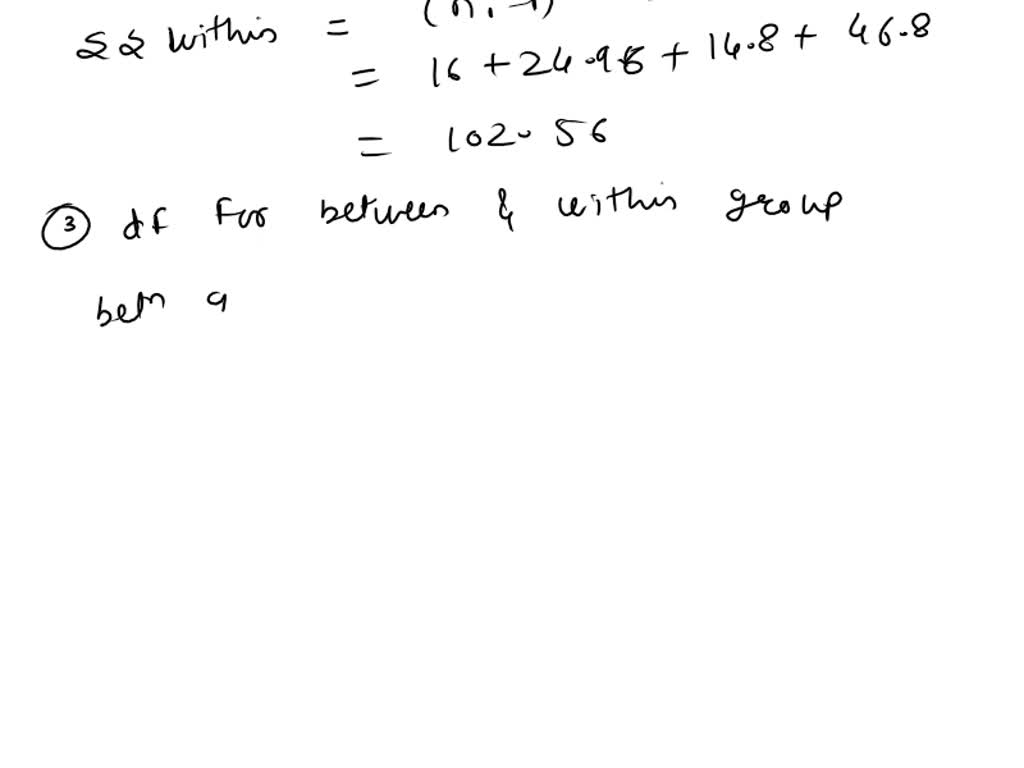 SS within = (n, -1)
= 16 + 24.96 + 14.8 + 46.8
= 102.56
③ df for between & within group
betn g